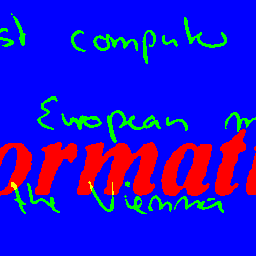 st computer
European m
ormati
the Vienna